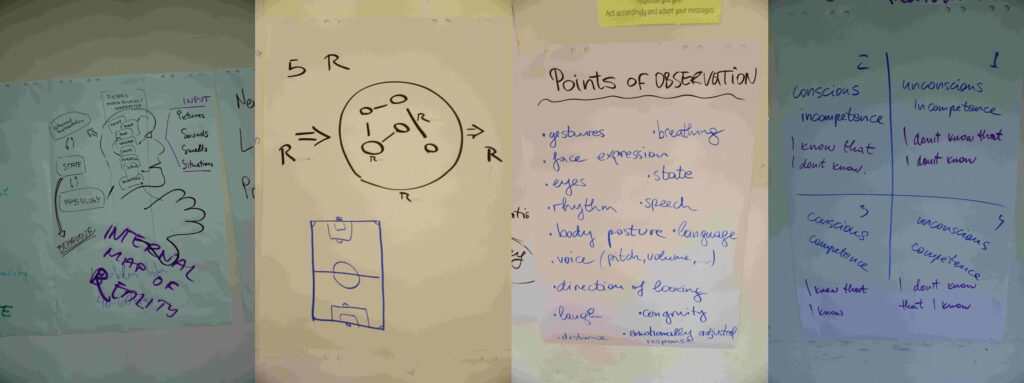 INPUT
Pictures
Sounds
Smells
Situation
STATE
PHYSIOLOGY
BEHAVIOUR
INTERNAL
MAP OF
REALITY
Ne
L
Pr
5 R
R
R
R
R
R
response you get.
Act accordingly and adapt your messages
Points of OBSERVATION
• gestures
• breathing
• face expression
• eyes
• state
• rhythm
• speech
• body posture
• language
• voice (pitch, volume, ...)
• direction of looking
• laugh
• congruity
• distance
• emotionally adjusted
response
2
conscious
incompetence
I know that
I don't know.
1
unconscious
incompetence
I don't know that
I don't know
3
conscious
competence
I know that
I know
4
unconscious
competence
I don't know
that I know